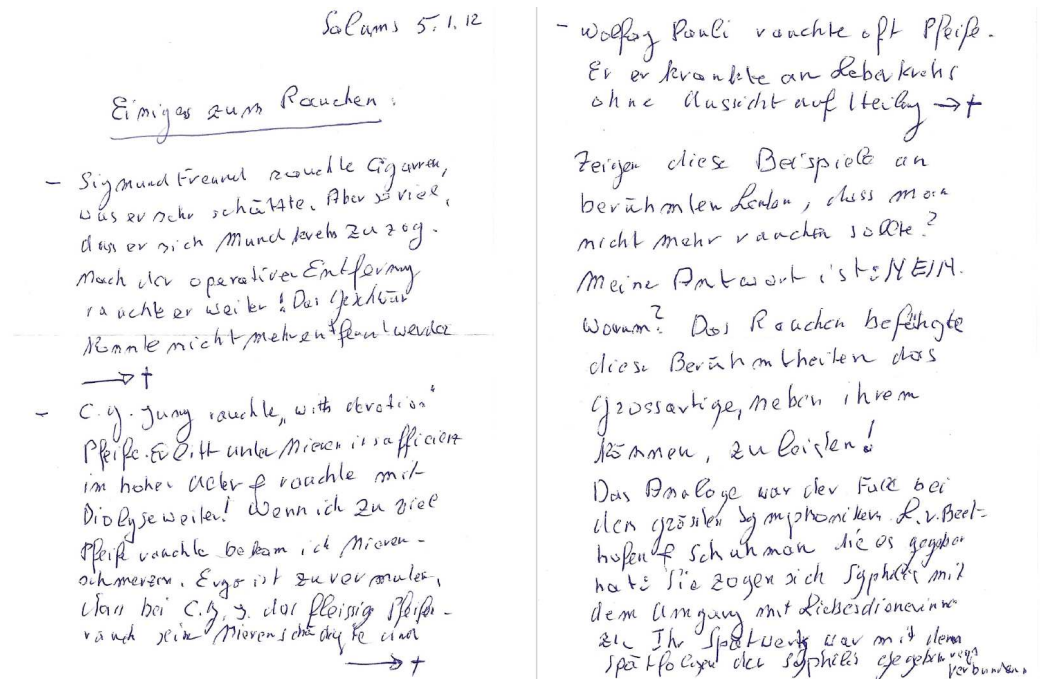 Salums 5.1.12
Einiges zum Rauchen:
- Sigmund Freund rauchte Cigarren,
was er sehr schätzte. Aber so viel,
dass er sich Mundkrebs zu zog.
Nach der operativen Entfernung
rauchte er weiter! Das Geschwür
konnte nicht mehr entfernt werden
→ †
- C.G. Jung rauchte „with devotion"
Pfeife. Er litt unter Niereninsafficienz
im hoher Alter & rauchte mit
Dialyse weiter! Wenn ich zu viel
Pfeife rauchte bekam ich Nieren-
schmerzen. Ergo ist zu vermuten,
dass bei C.G.J. das fleissig Pfeifen-
rauch sein Nieren schädigte und
→ †
- Wolfgang Pauli rauchte oft Pfeife.
Er erkrankte an Leberkrebs
ohne Aussicht auf Heilung → †
Zeigen diese Beispiele an
berühmten Leuten, dass man
nicht mehr rauchen sollte?
Meine Antwort ist: NEIN.
Worum? Das Rauchen befähigte
diese Berühmtheiten das
Grossartige, neben ihrem
Können, zu leisten!
Das Analoge war der Fall bei
den grössten Symphonikern L.v. Beet-
hofen & Schuhman die es gegeben
hat: Sie zogen sich Syphilis mit
dem Umgang mit Liebesdienerinnen
zu. Ihr Spätwerk war mit dem
Spätfolgen der Syphilis verbunden.